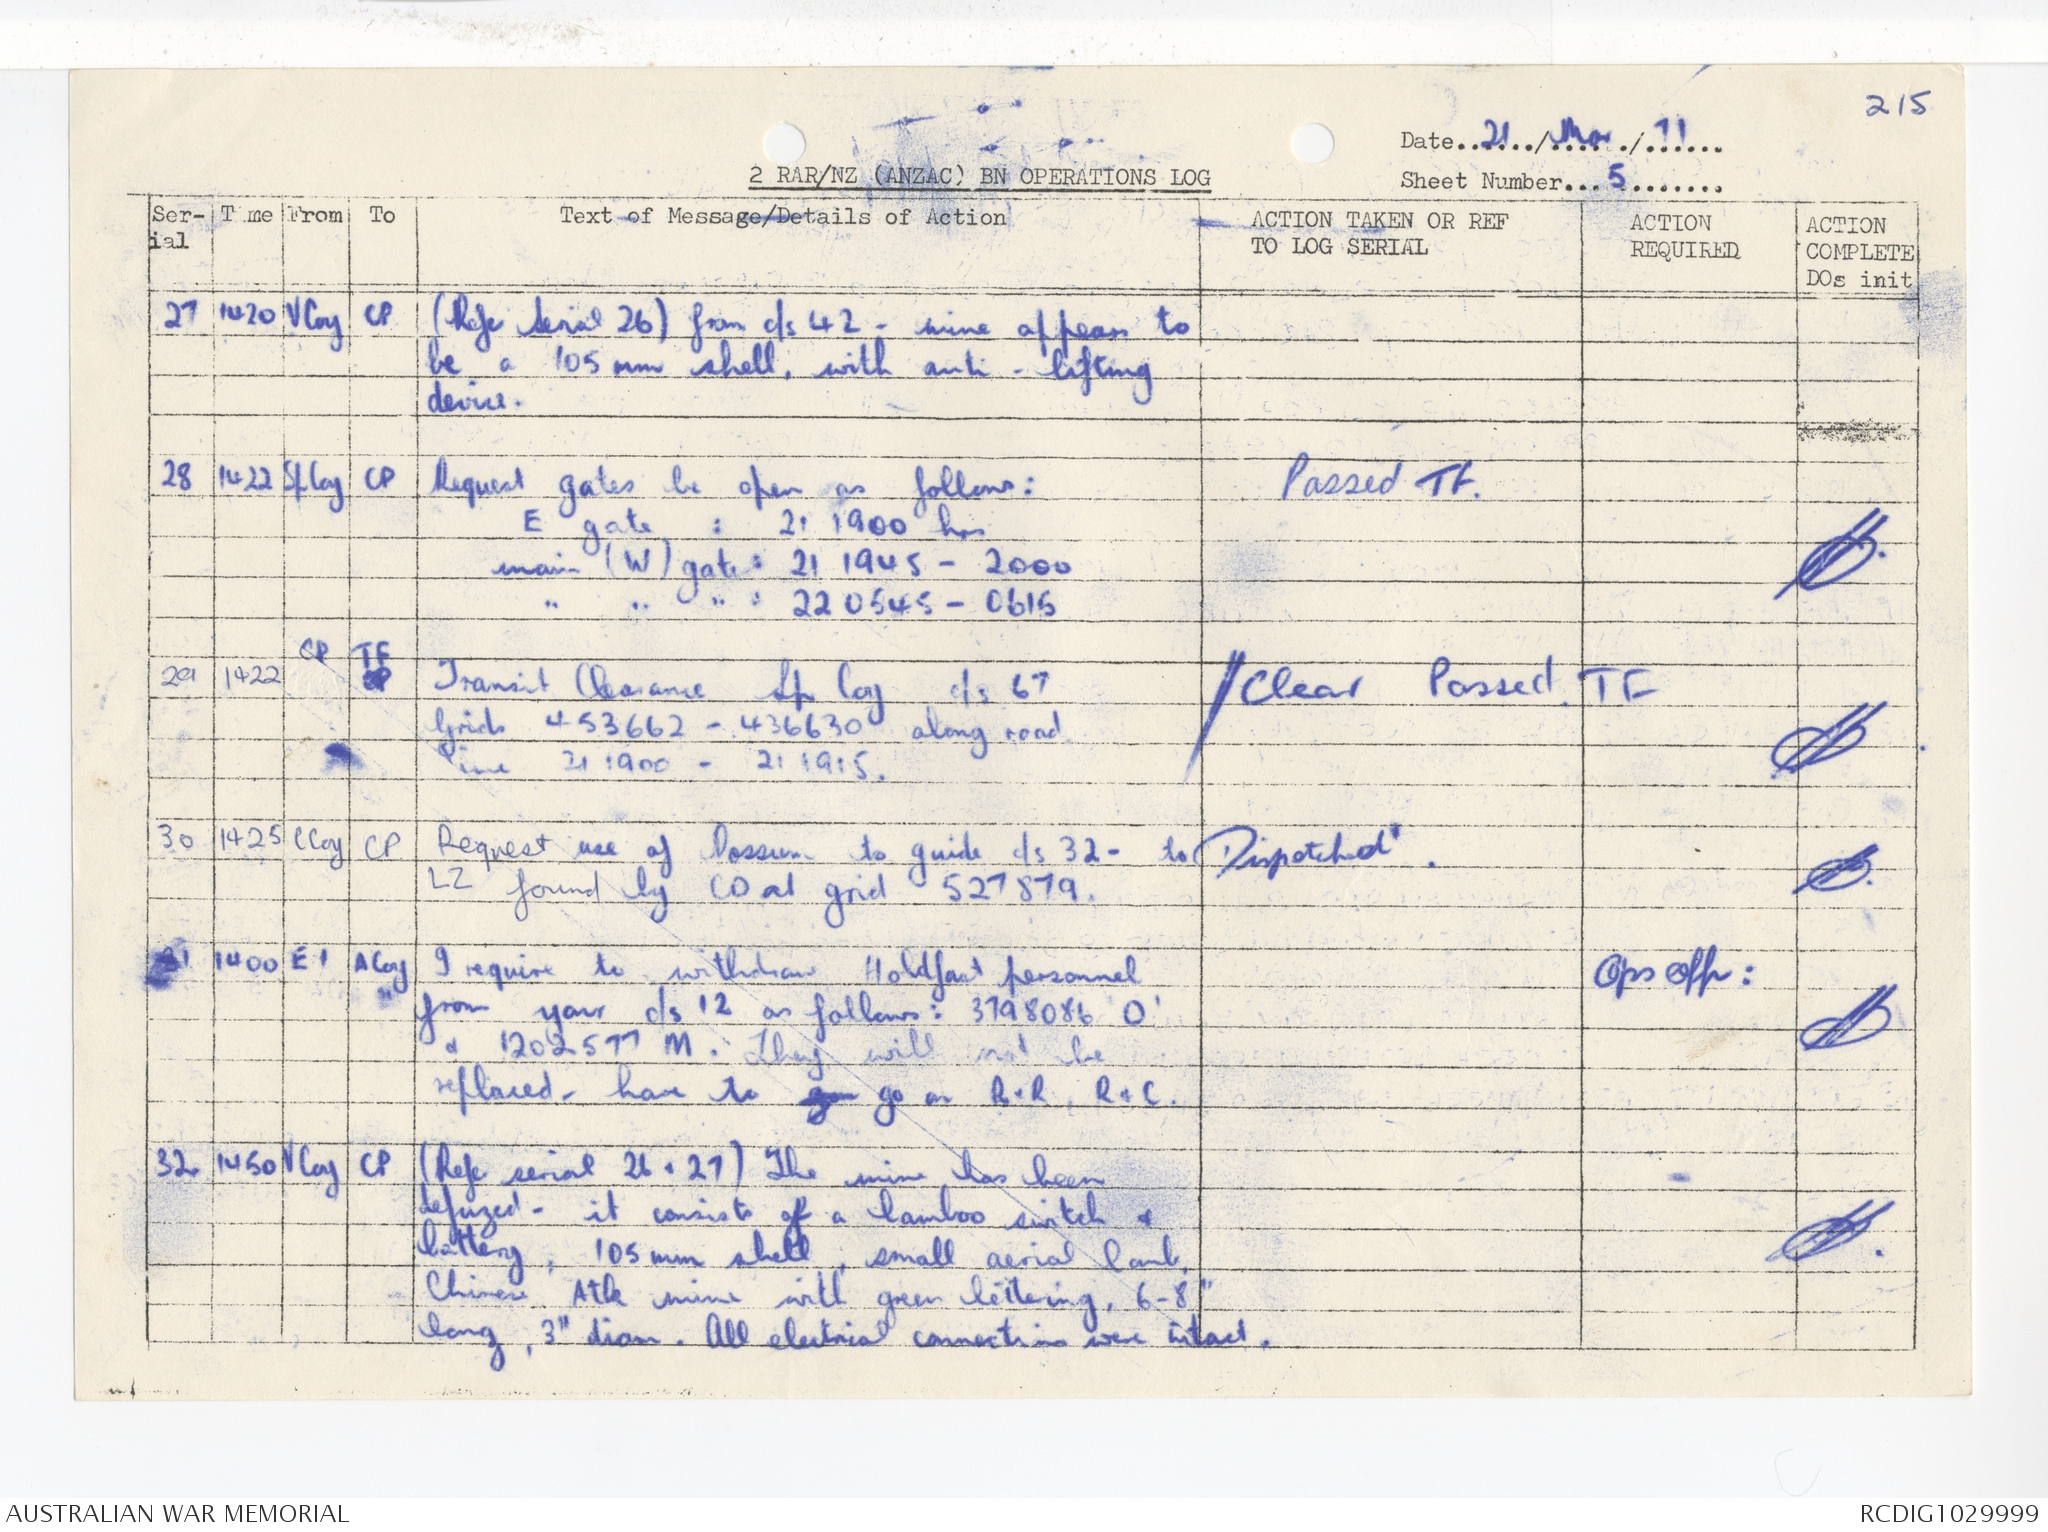 215
Date..21../.Mar../.71...
2 RAR/NZ (ANZAC) BN OPERATIONS LOG
Sheet Number...5.......
Ser-ial Time From To Text of Message/Details of Action ACTION TAKEN OR REF TO LOG SERIAL ACTION REQUIRED ACTION COMPLETE DOs init
27 1420 V Coy CP (Refe Serial 26) from c/s 42 - mine appears to
be a 105 mm shell, with anti - lifting
device.
28 1422 Sp Coy CP Request gates be open as follows: Passed TF.
E gate : 21 1900 hrs
main (W) gate : 21 1945 - 2000
" " " : 22 0545 - 0615
CP TF
29 1422 Transit Clearance Sp Coy c/s 67 Clear Passed. TF
Grids 453662 - 436630 along road
Time 21 1900 - 21 1915.
30 1425 C Coy CP Request use of Possum to guide c/s 32 - to Dispatched.
LZ found by CO at grid 527879.
31 1400 E1 A Coy I require to withdraw Holdfast personnel Ops Offr:
" from your c/s 12 as follows: 3798086 'O'
& 1202577 M. They will not be
replaced - have to go on R&R, R&C.
32 1450 V Coy CP (Refe serial 26 & 27) The mine has been
defuzed - it consists of a bamboo switch &
battery, 105 mm shell, small aerial bomb,
Chinese Atk mine with green lettering, 6-8"
long, 3" diam. All electrical connections were intact.
AUSTRALIAN WAR MEMORIAL
RCDIG1029999